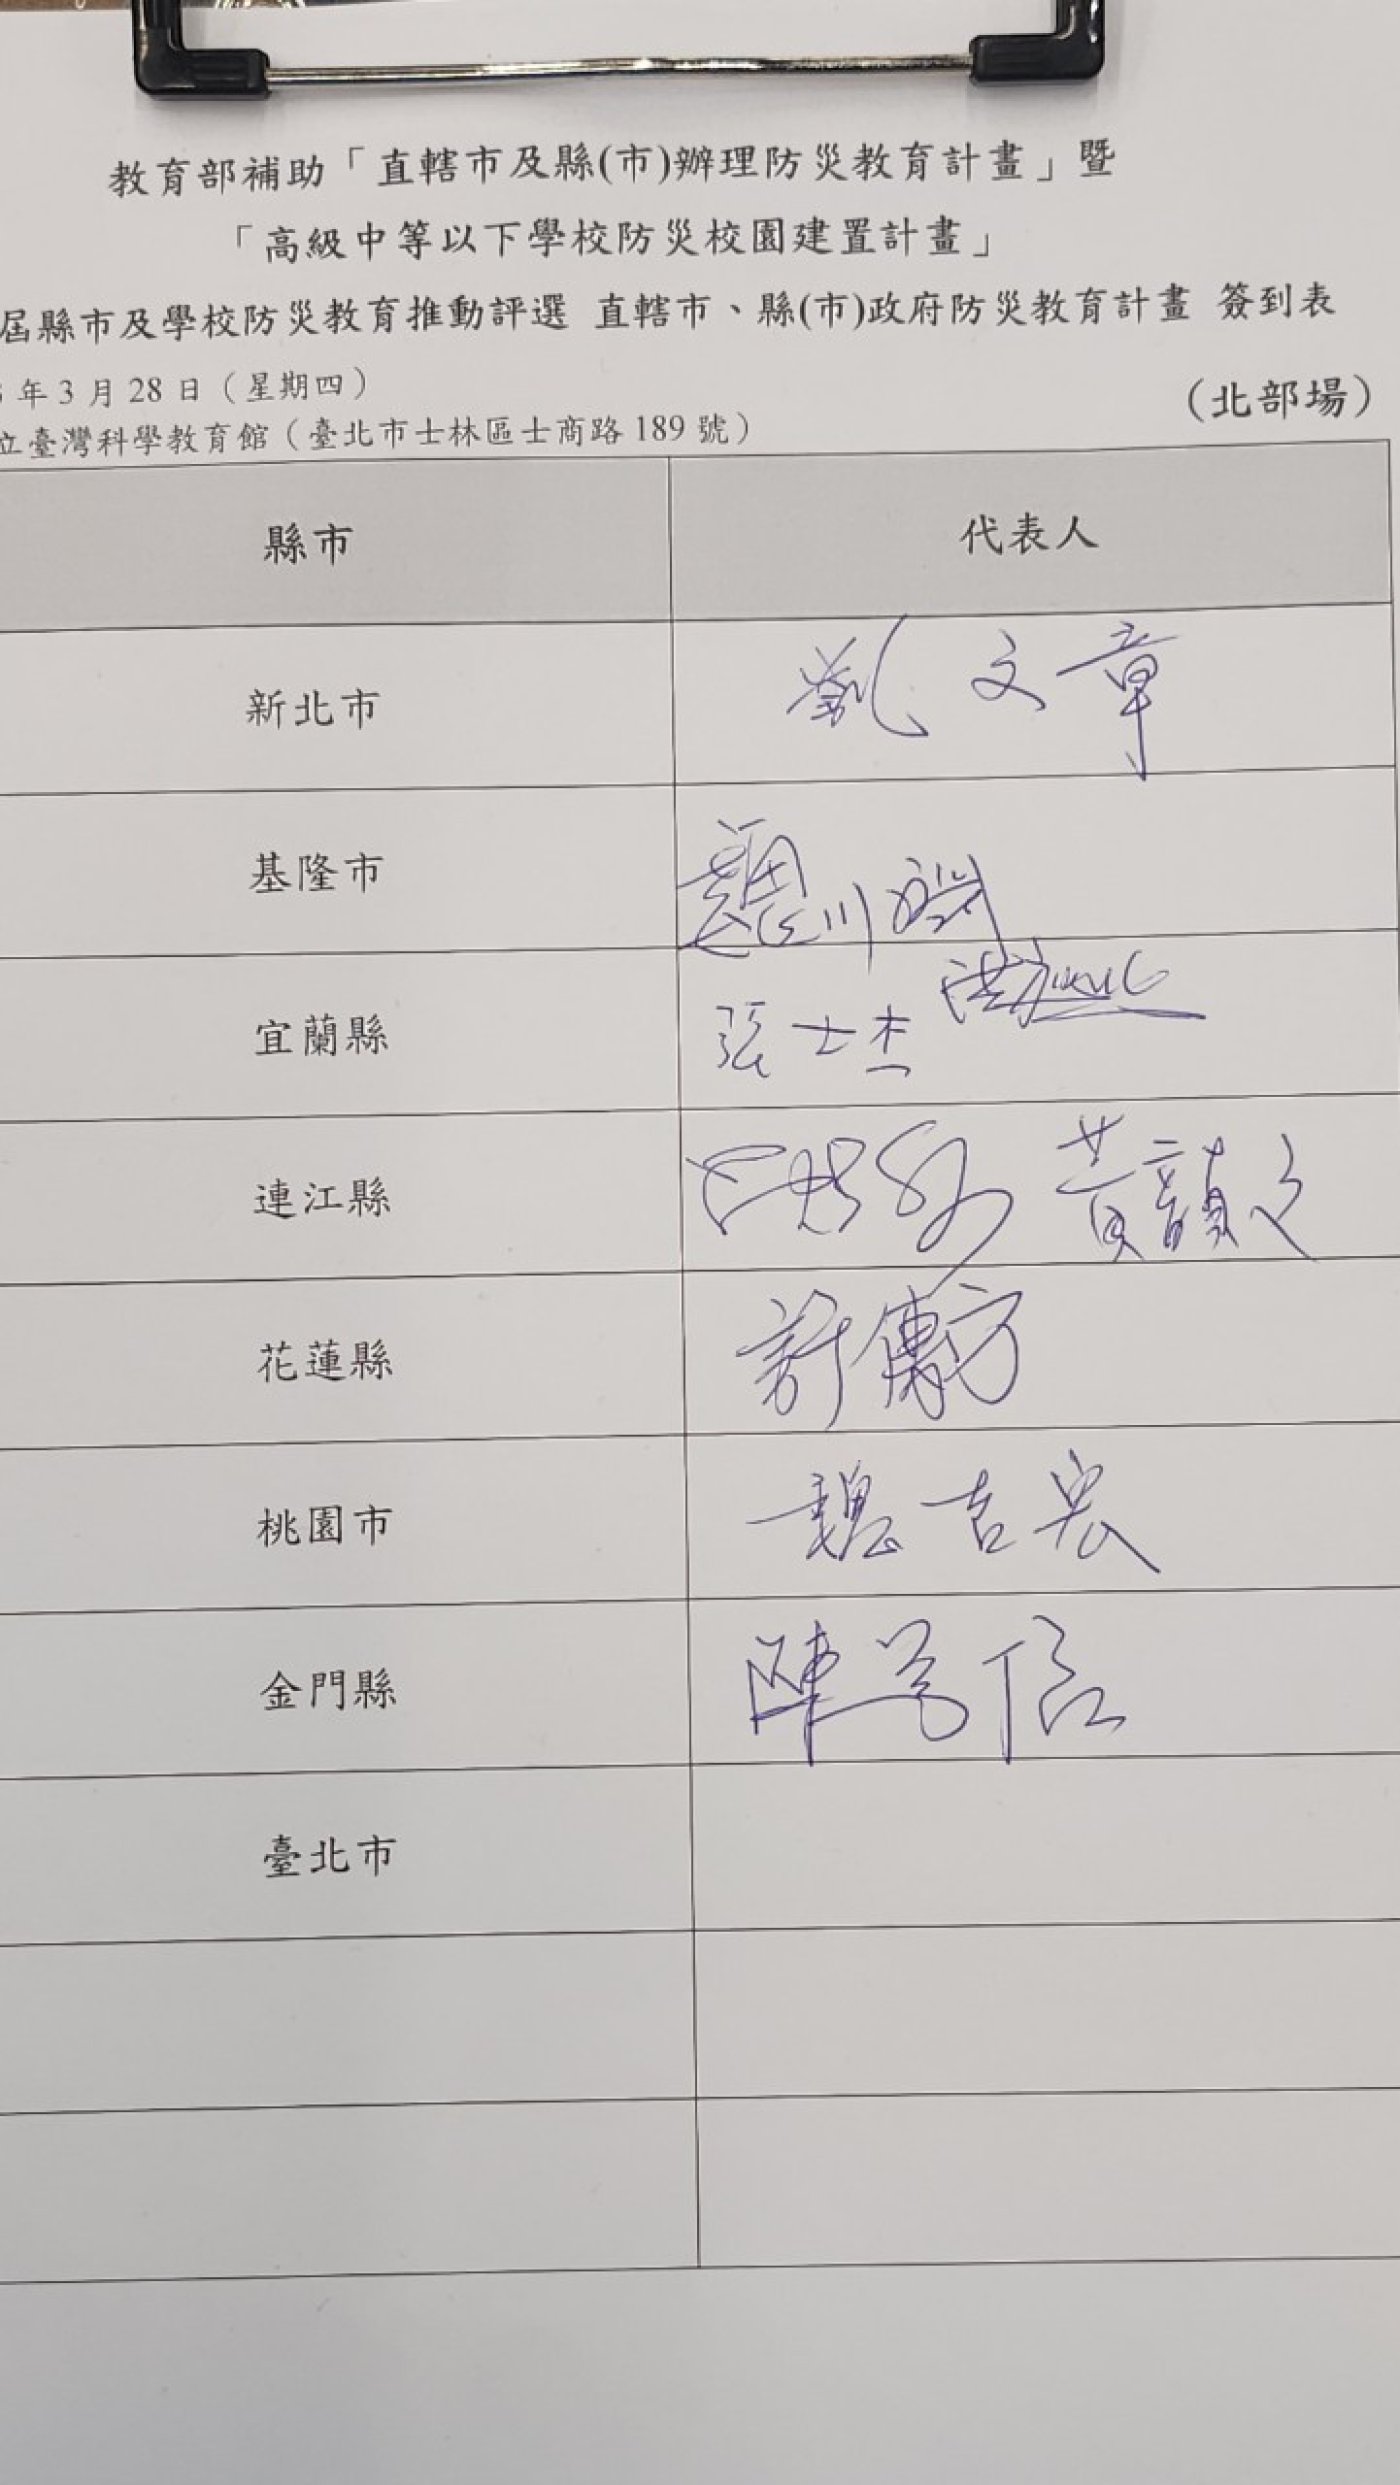 教育部補助「直轄市及縣(市)辦理防災教育計畫」暨
「高級中等以下學校防災校園建置計畫」
屆縣市及學校防災教育推動評選 直轄市、縣(市)政府防災教育計畫 簽到表
年3月28日（星期四）
（北部場）
立臺灣科學教育館（臺北市士林區士商路189號）
縣市 代表人
新北市 劉文章
基隆市
宜蘭縣 張士杰
連江縣 黃
花蓮縣 許傳方
桃園市 魏吉宏
金門縣 陳 信
臺北市